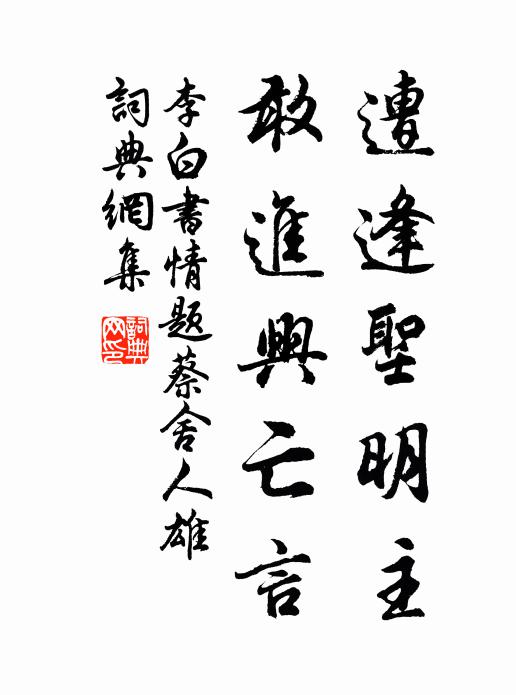 遭逢聖明主
敢進興亡言
李白書情題蔡舍人雄
詞典網集
詞典
网印